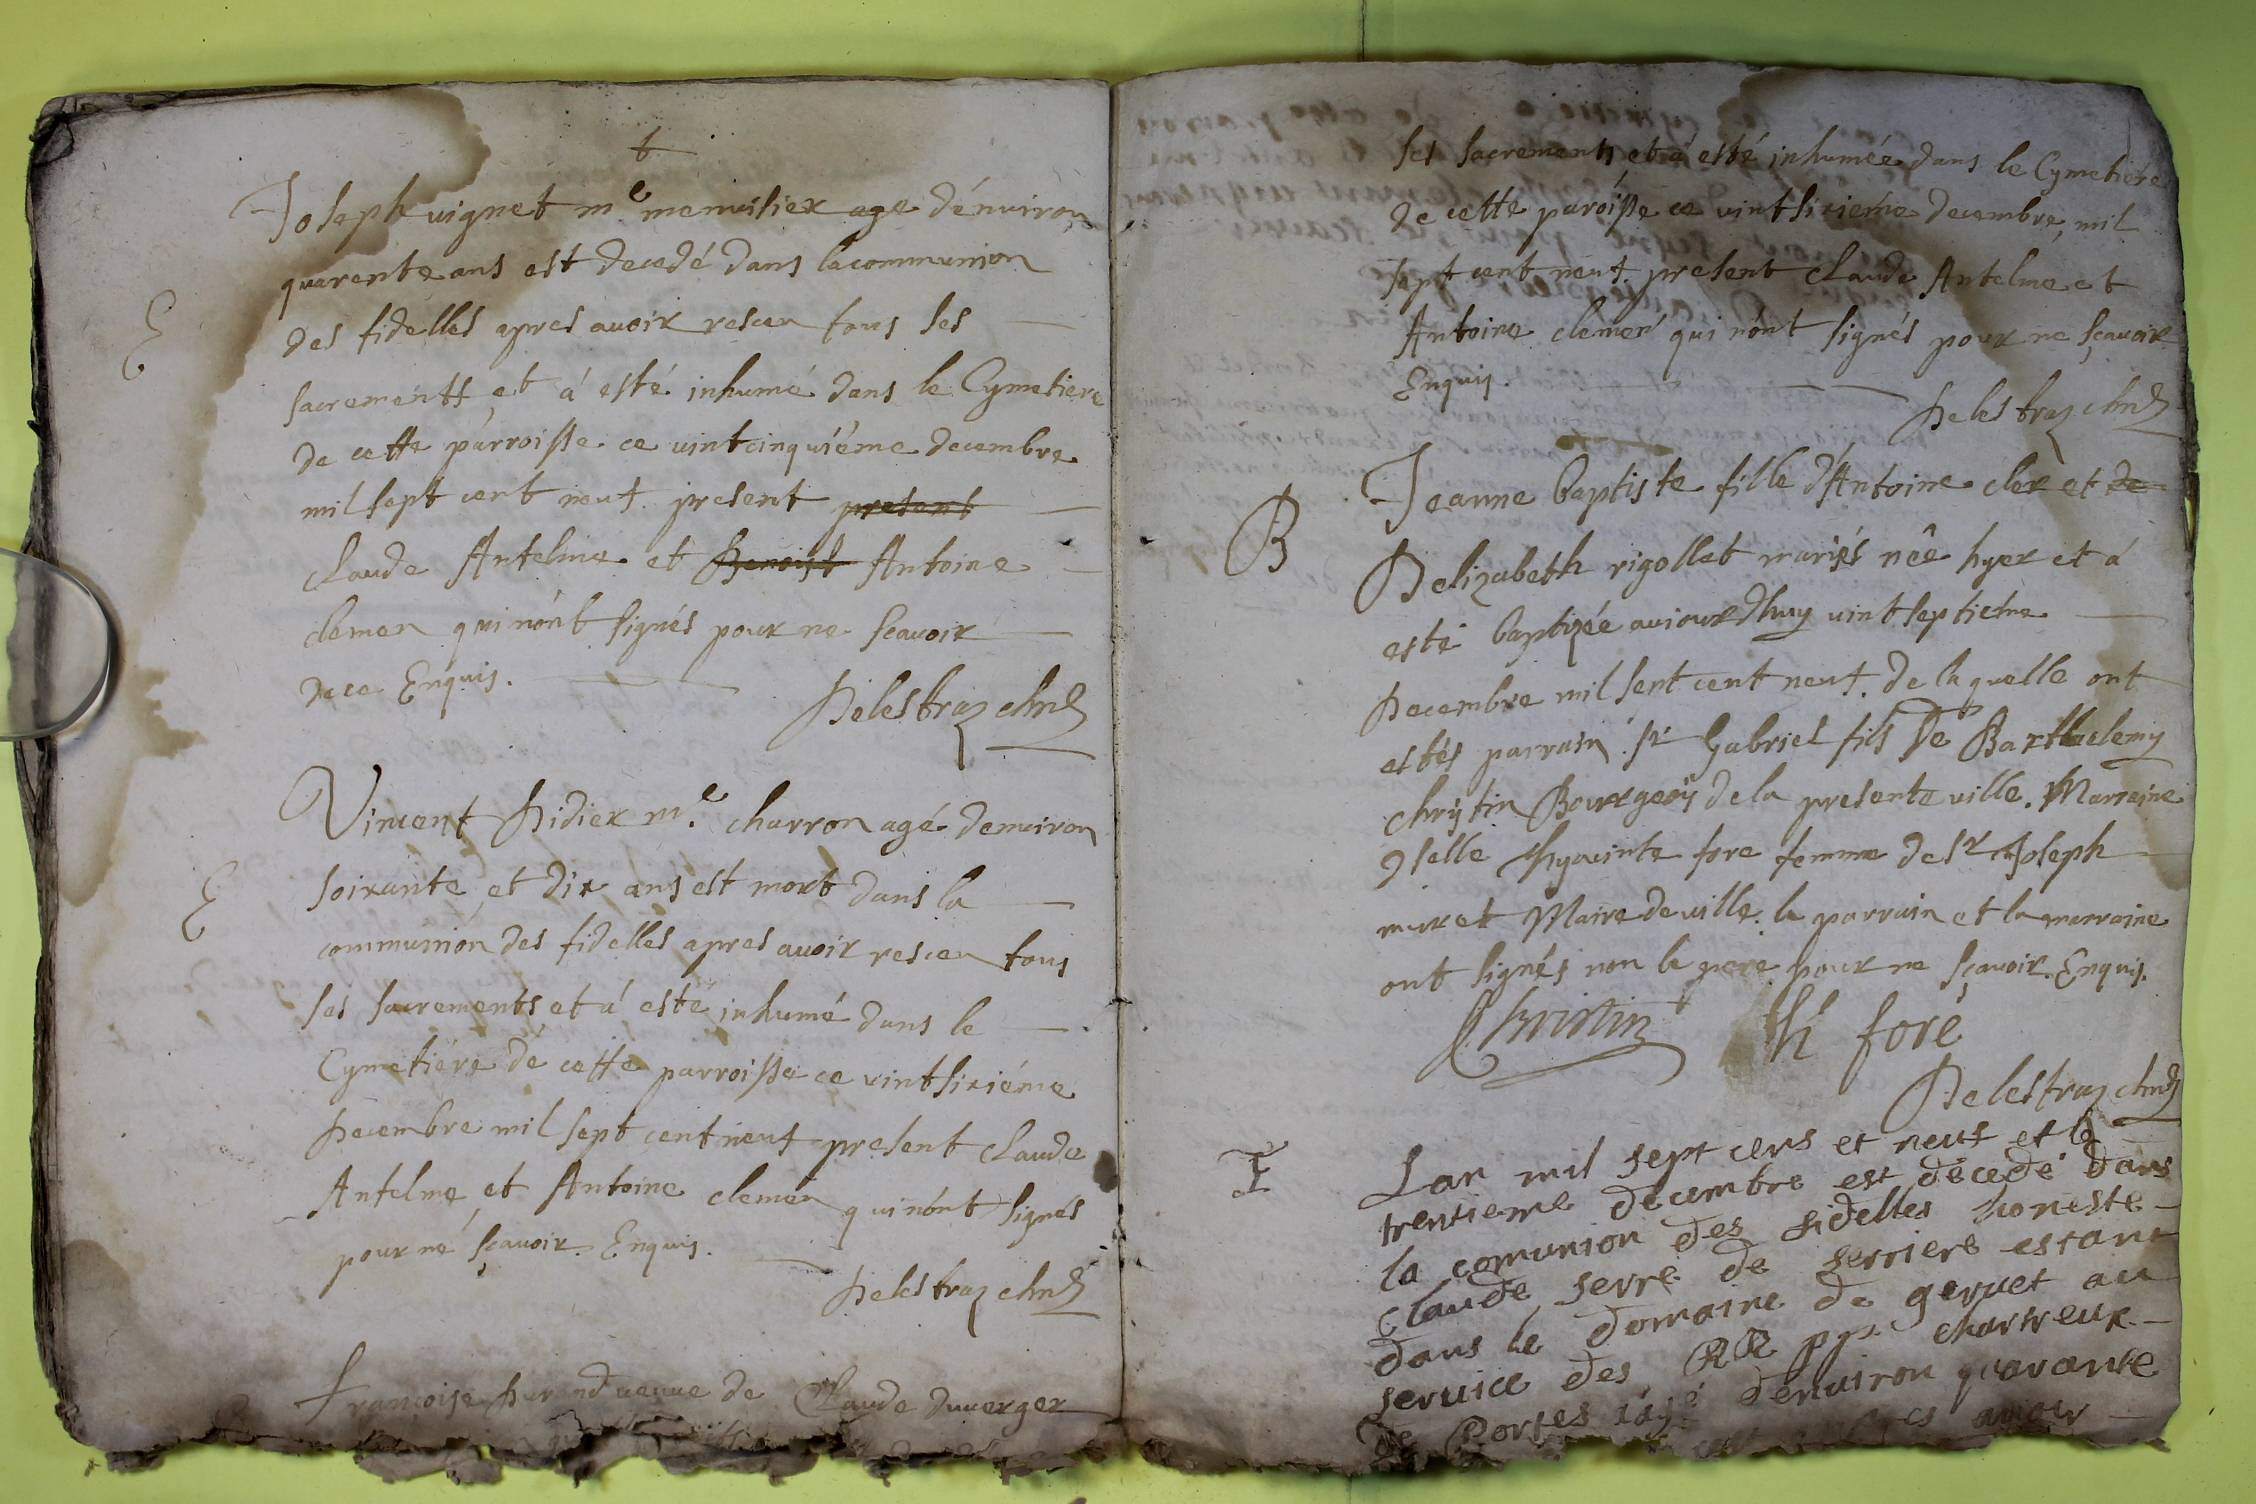 t
Joseph vignet me menuisier age dénuiron
E
quarente ans est decedé dans la communion
des fidelles apres auoir resceu tous ses
sacrements et á esté inhumé dans le Cymetiere
de cette parroisse ce vintcinquiéme decembre
mil sept cent neuf present present
claude Antelme et Benoist Antoine
clemen qui nónt signés pour ne scauoir
dece Enquis.
Delestraz chne
Vincent Didier me charron agé denuiron
E
soixante et dix ans est mort dans la
communion des fidelles apres auoir resceu tous
ses sacrements et á esté inhumé dans le
Cymetiére de cette parroisse ce vintsixiéme
Decembre mil sept cent neuf present claude
Antelme et Antoine clemen qui nónt signés
pour ne sçauoir. Enquis.
Delestraz chne
françoise Durand veuue de Claude duuerger
ses sacrements et á esté inhumée dans le Cymetiére
de cette paroisse ce vintsixiéme decembre, mil
sept cent neuf present claude Antelme et
Antoine clemen qui nónt signés pour ne sçauoir
Enquis.
Delestraz chne
B
Jeanne baptiste fille d'Antoine cler et de
Delizabeth rigollet mariés néé hyer et á
esté baptizée auiourdhuy vintseptieme
Decembre mil sent cent neuf. de laquelle ont
estés parrain. sr Gabriel fils De Barthelemy
christin Bourgeois dela presente ville. Marraine
dselle hyacinte fore femme de sr Joseph
muret Maire de ville. le parrain et la marraine
ont signés non le pere pour ne sçauoir. Enquis.
Christin hi foré
Delestraz chne
E
Lan mil sept cens et neuf et le
trentieme decembre est décedé dans
la comunion des fidelles honeste
claude serre de serriere estant
dans le domaine de geruet au
seruice des RR pp. chartreux
de Portes ságé denuiron quarante
auoir